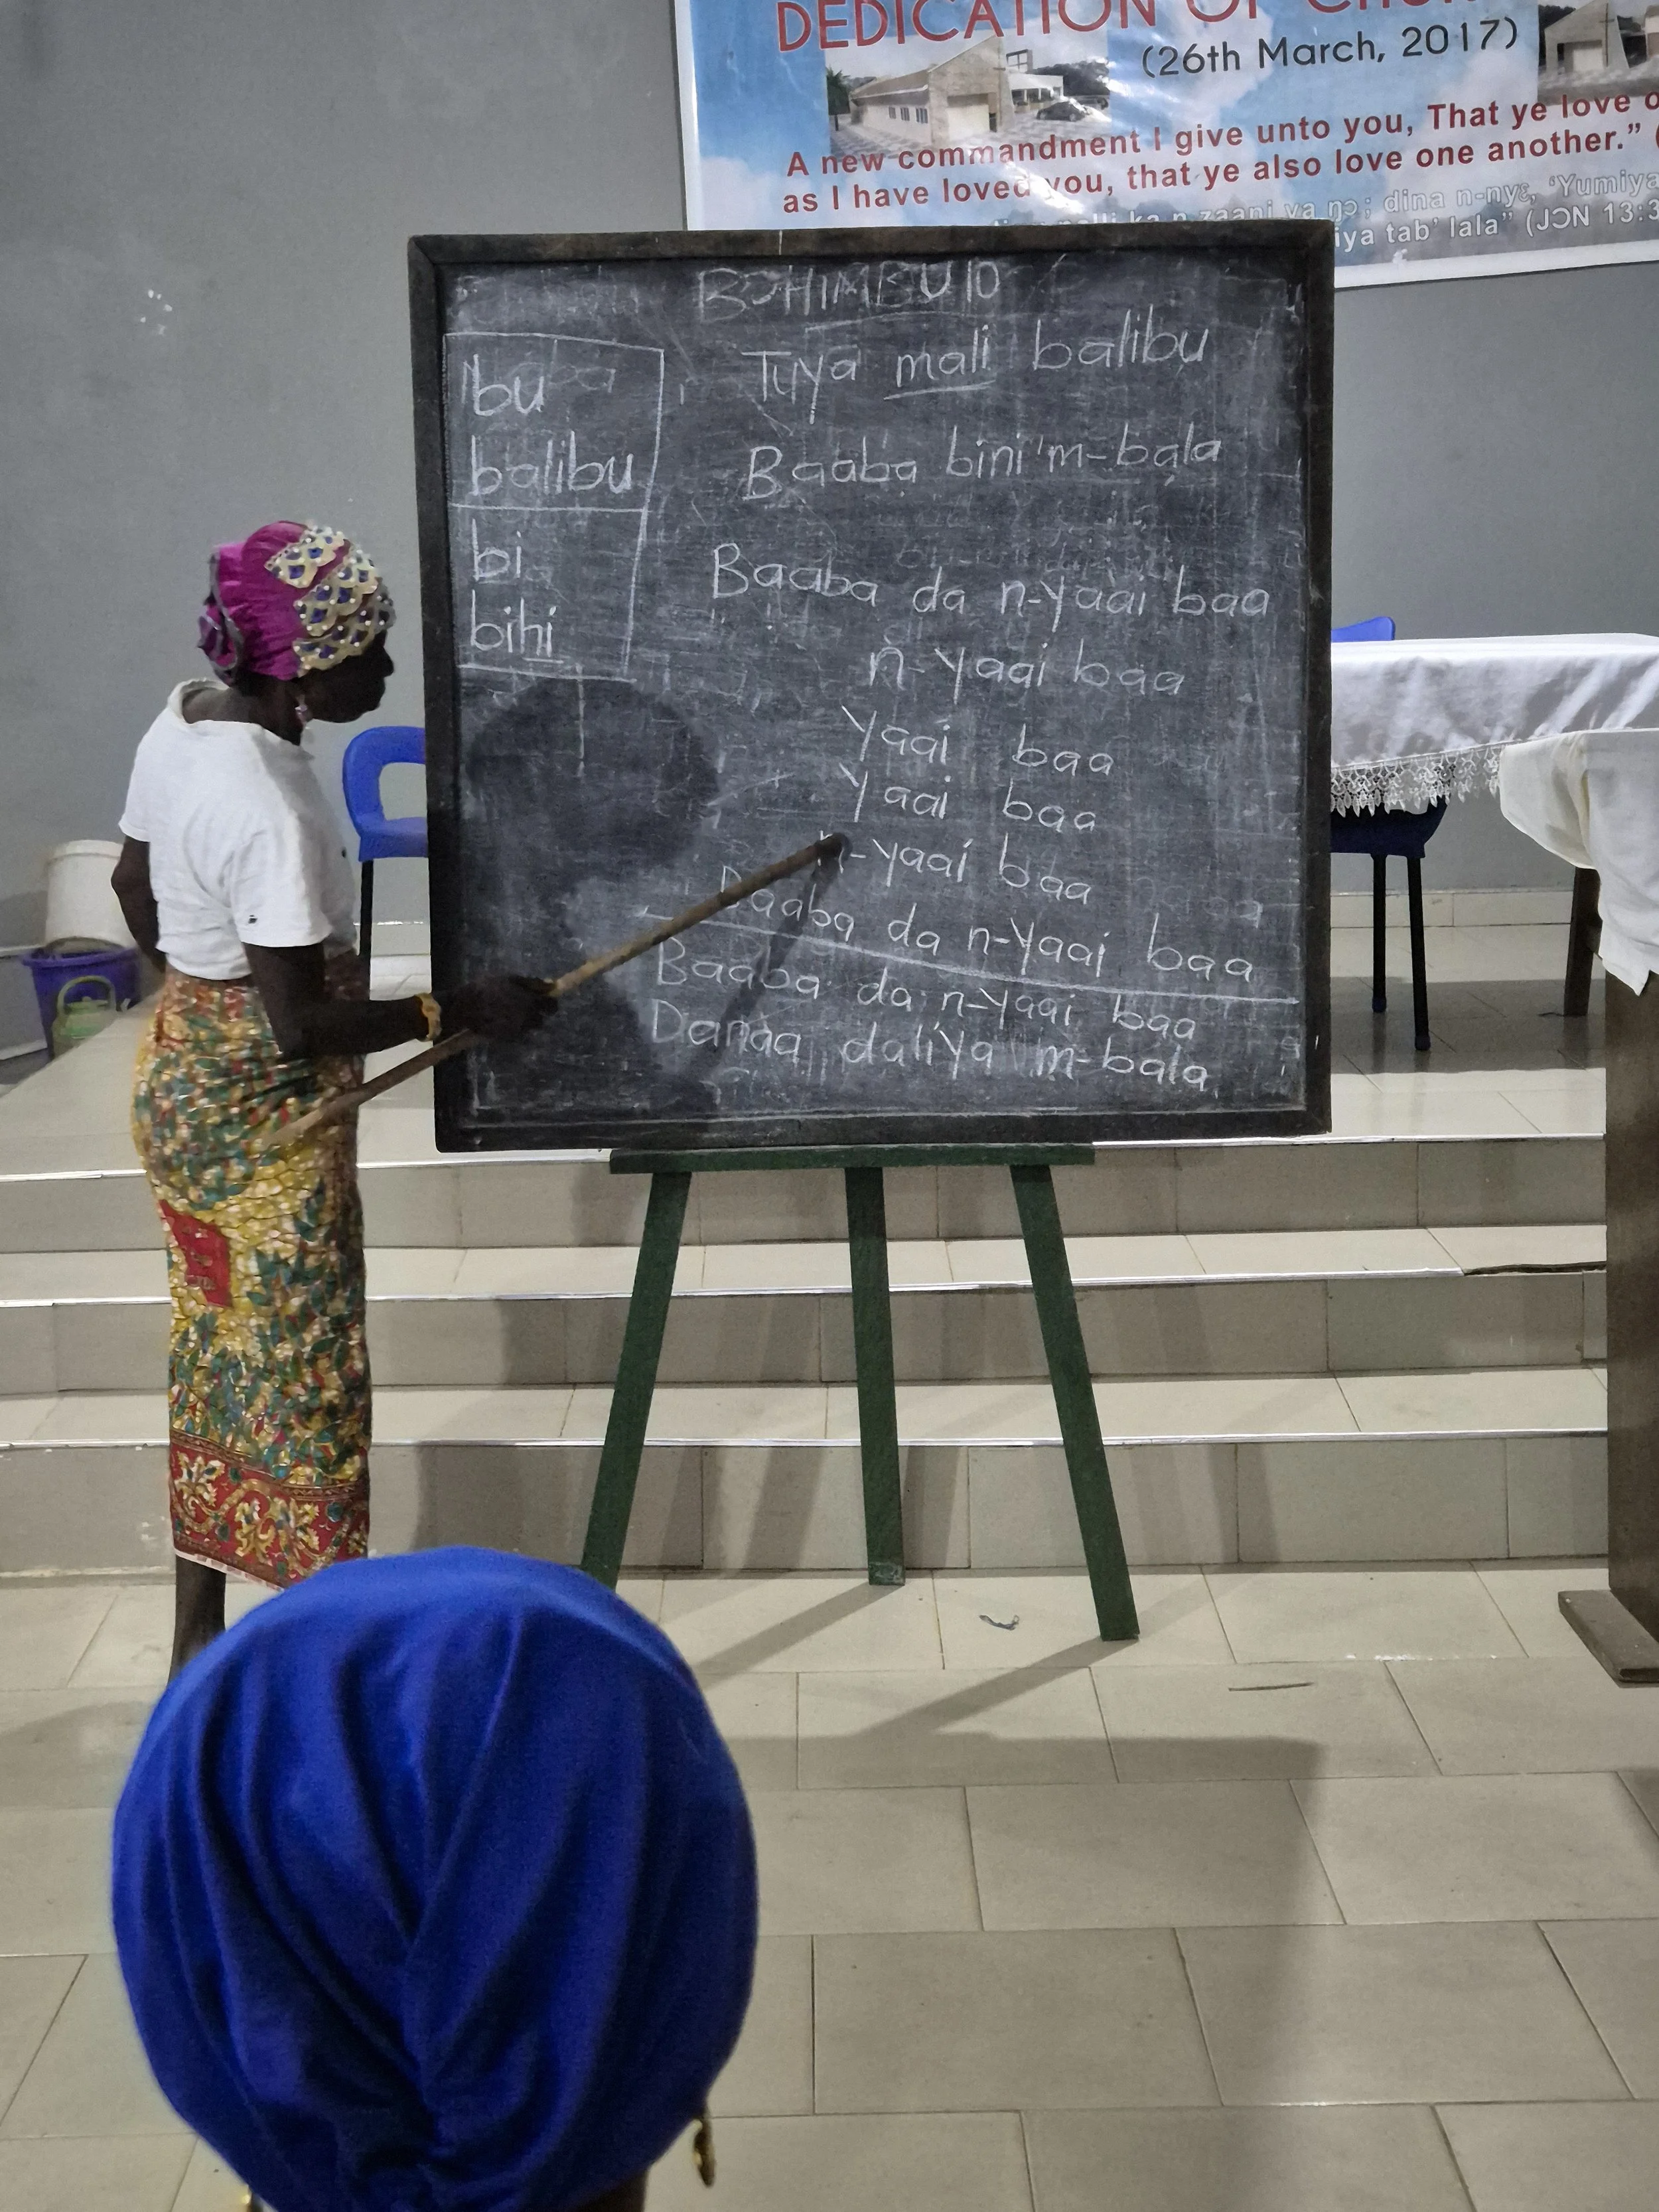 DEDICATION OF
(26th March, 2017)
A new commandment I give unto you, That ye love
as I have loved you, that ye also love one another."
ka n zaani ya ŋɔ; dina n-nyɛ, 'Yumiya
iya tab' lala" (JƆN 13:3
BƆHIMBU 10
bu
balibu
bi
bihi
Tuya mali balibu
Baaba bini m-bala
Baaba da n-yaai baa
n-yaai baa
yaai baa
yaai baa
n-yaai baa
Baaba da n-yaai baa
Baaba da n-yaai baa
Danaa daliya m-bala